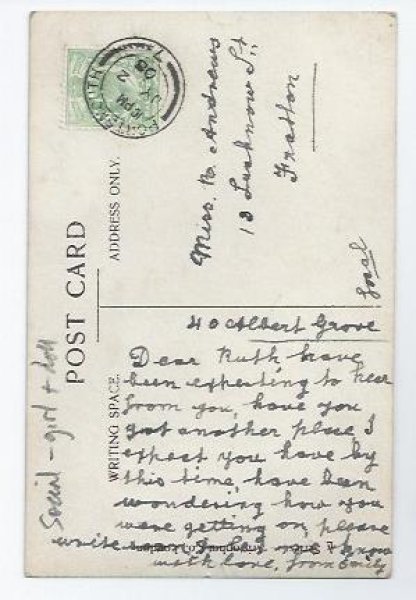 POST CARD
WRITING SPACE.
ADDRESS ONLY.
PORTSMOUTH
10 PM
JY 2
08
7
Miss. R. Andrews
13 Lucknow St.
Fratton
Local
40 Albert Grove
Dear Ruth have
been expecting to hear
from you, have you
got another place I
expect you have by
this time, have been
wondering how you
were getting on, please
write and let me know
with love, from Emily
Social - girl + doll